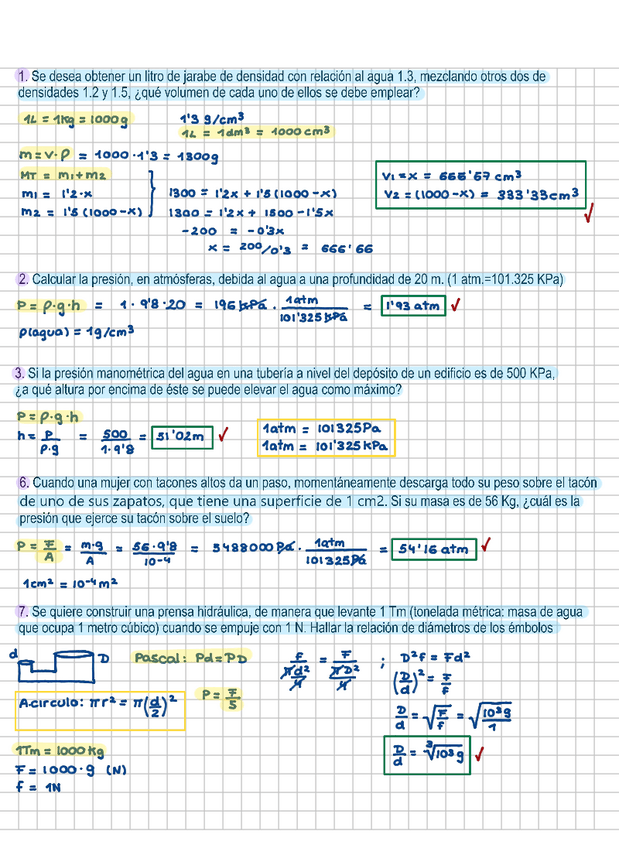 1. Se desea obtener un litro de jarabe de densidad con relación al agua 1.3, mezclando otros dos de
densidades 1.2 y 1.5, ¿qué volumen de cada uno de ellos se debe emplear?
1L = 1kg = 1000g
1'3 g/cm³
1L = 1dm³ = 1000 cm³
m = v · ρ = 1000 · 1'3 = 1300g
MT = m1 + m2
m1 = 1'2 · x
m2 = 1'5 (1000 - x)
1300 = 1'2x + 1'5 (1000 - x)
1300 = 1'2x + 1500 - 1'5x
-200 = -0'3x
x = 200/0'3 = 666'66
V1 = x = 666'67 cm³
V2 = (1000 - x) = 333'33 cm³
2. Calcular la presión, en atmósferas, debida al agua a una profundidad de 20 m. (1 atm.=101.325 KPa)
P = ρ · g · h = 1 · 9'8 · 20 = 196 kPa · 1atm / 101'325 kPa = 1'93 atm
ρ(agua) = 1g/cm³
3. Si la presión manométrica del agua en una tubería a nivel del depósito de un edificio es de 500 KPa,
¿a qué altura por encima de éste se puede elevar el agua como máximo?
P = ρ · g · h
h = P / ρ · g = 500 / 1 · 9'8 = 51'02m
1atm = 101325Pa
1atm = 101'325 kPa
6. Cuando una mujer con tacones altos da un paso, momentáneamente descarga todo su peso sobre el tacón
de uno de sus zapatos, que tiene una superficie de 1 cm2. Si su masa es de 56 Kg, ¿cuál es la
presión que ejerce su tacón sobre el suelo?
P = F / A = m · g / A = 56 · 9'8 / 10⁻⁴ = 5488000 Pa · 1atm / 101325 Pa = 54'16 atm
1cm² = 10⁻⁴ m²
7. Se quiere construir una prensa hidráulica, de manera que levante 1 Tm (tonelada métrica: masa de agua
que ocupa 1 metro cúbico) cuando se empuje con 1 N. Hallar la relación de diámetros de los émbolos
d
D
Pascal: Pd = PD
P = F / S
A.circulo: πr² = π(d/2)²
1Tm = 1000 kg
F = 1000 · g (N)
f = 1N
f / πd²/4 = F / πD²/4 ; D²f = Fd²
(D/d)² = F/f
D/d = √F/f = √10³g/1
D/d = ³√10³g